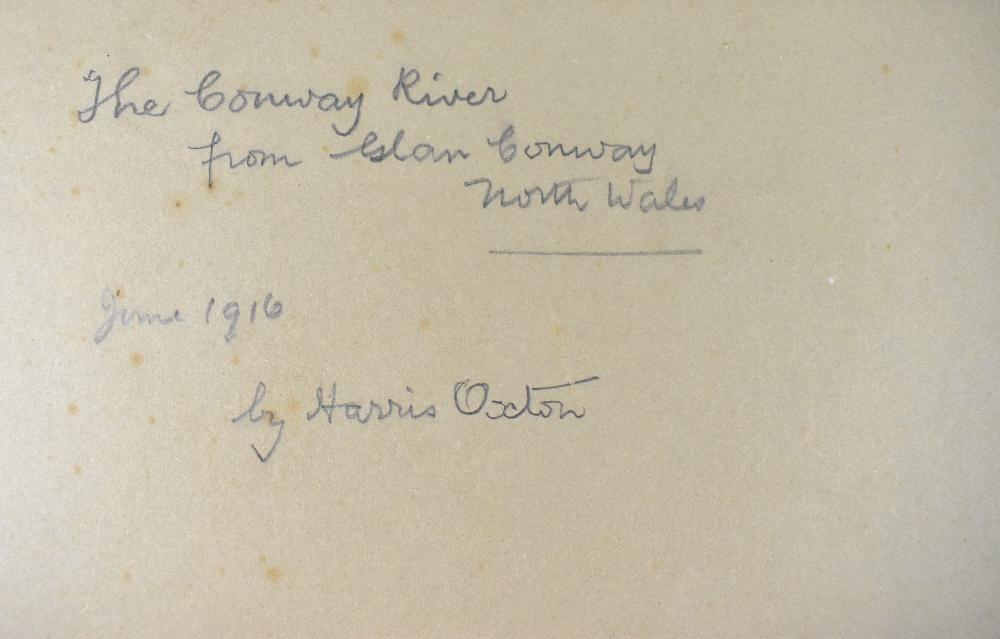 The Conway River
from Glan Conway
North Wales
June 1916
by Harris Oxton